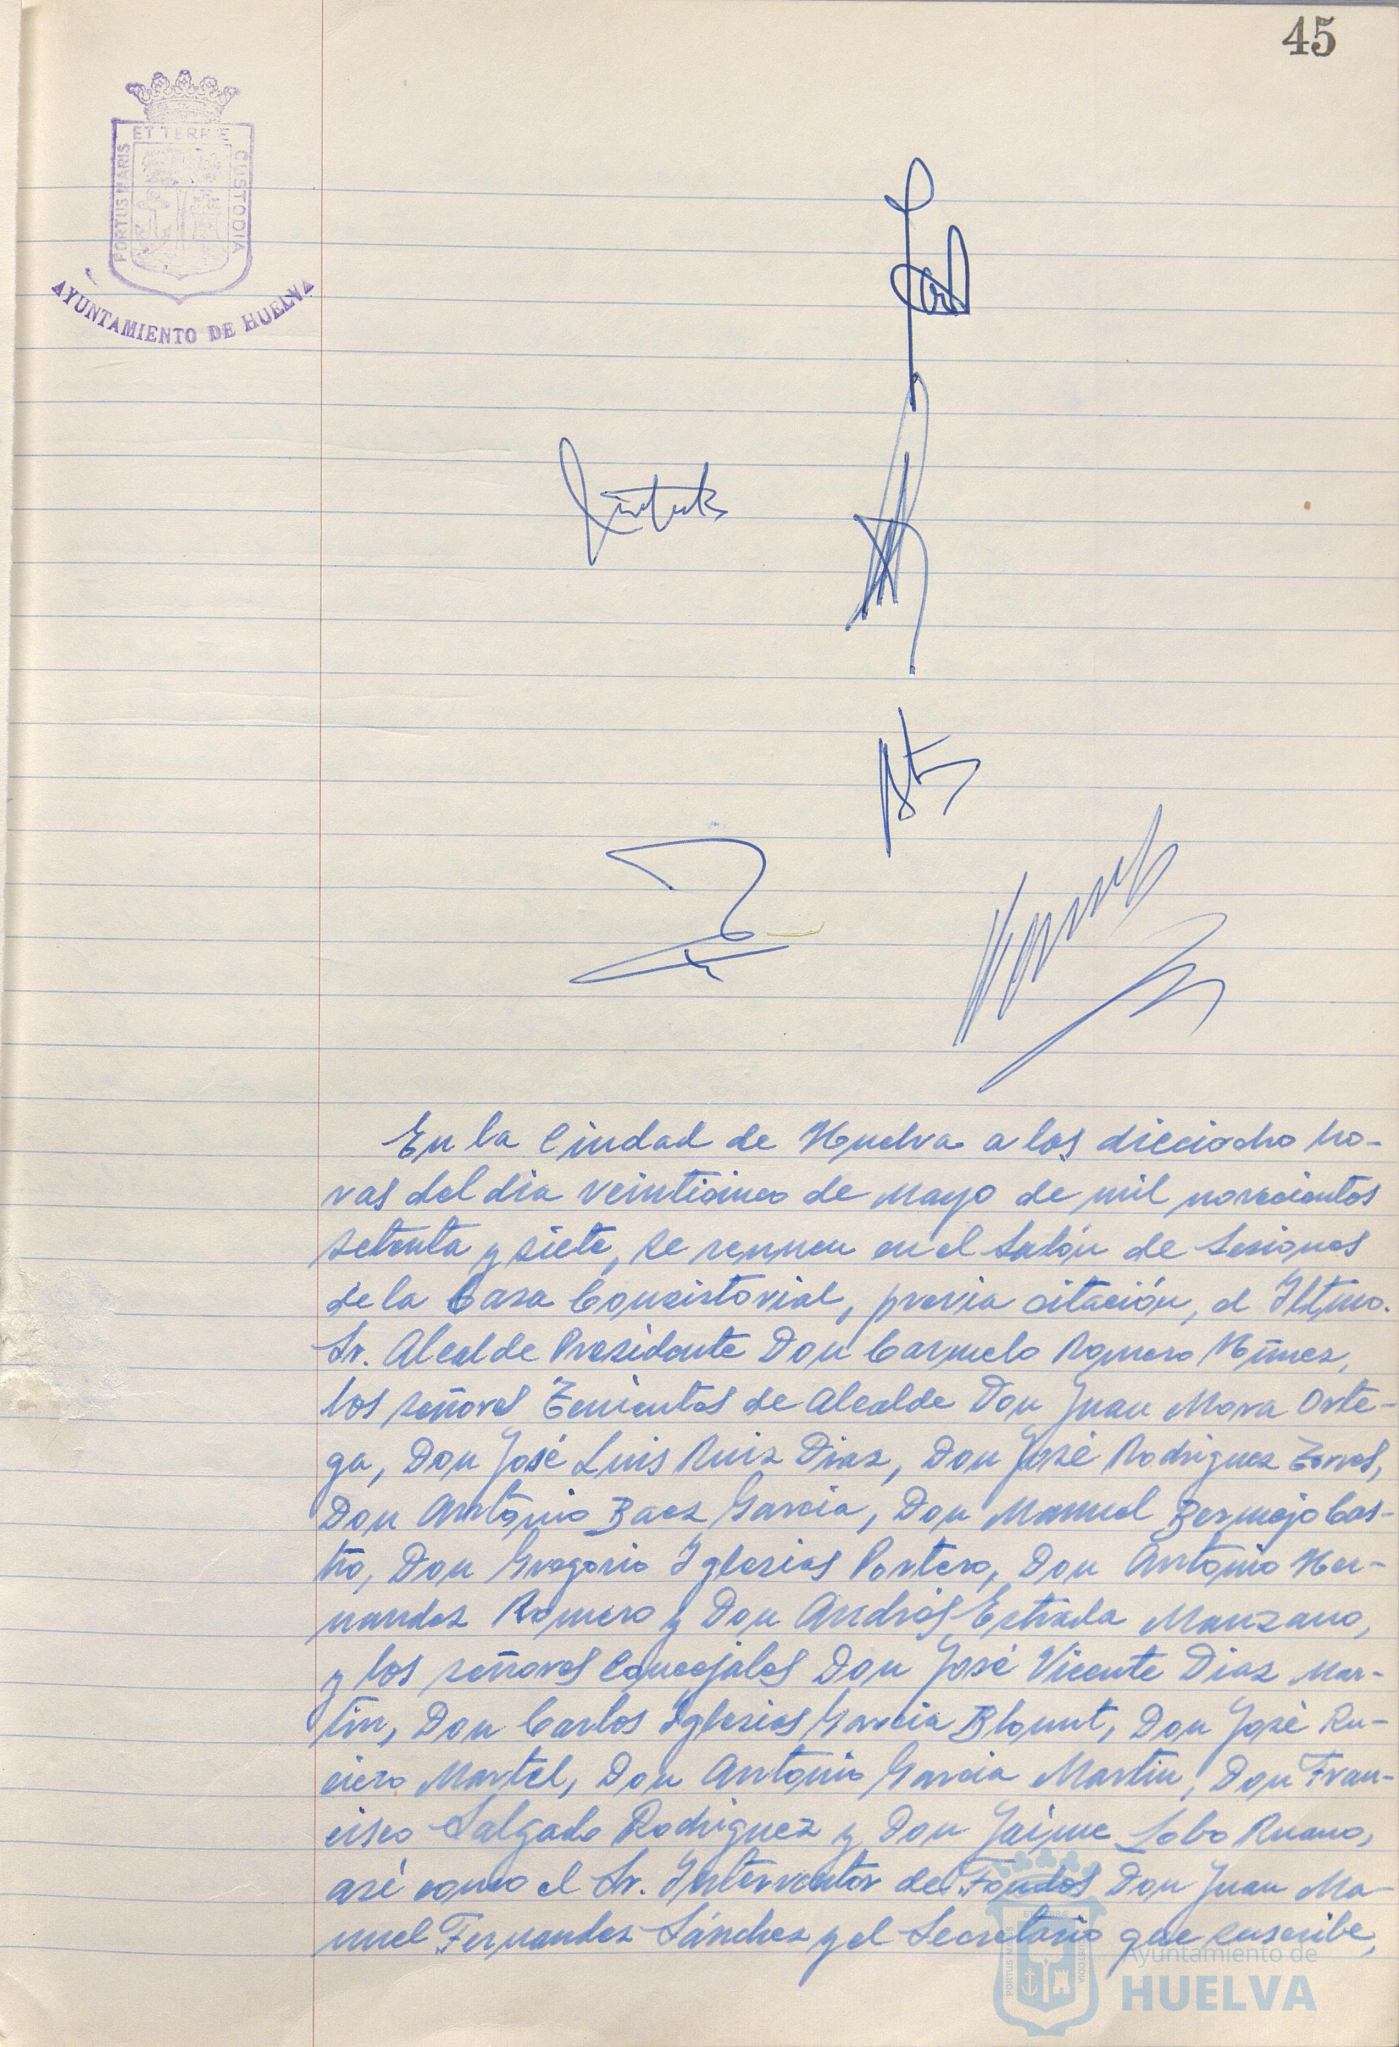 45
ET TERRÆ
PORTUS MARIS
CUSTODIA
AYUNTAMIENTO DE HUELVA
En la Ciudad de Huelva a los dieciocho ho-
ras del dia veinticinco de Mayo de mil novecientos
setenta y siete, se reunen en el Salón de Sesiones
de la Casa Consistorial, previa citación, el Iltmo.
Sr. Alcalde Presidente Don Carmelo Romero Núñez,
los señores Tenientes de Alcalde Don Juan Mora Orte-
ga, Don José Luis Ruiz Diaz, Don José Rodriguez
Don Antonio Baez Garcia, Don Manuel Bermejo Cas-
tro, Don Gregorio Iglesias Portero, Don Antonio Her-
nandez Romero y Don Andrés Estrada Manzano,
y los señores Concejales Don José Vicente Diaz Mar-
tin, Don Carlos Iglesias Garcia Blount, Don José Ru-
ciero Martel, Don Antonio Garcia Martin, Don Fran-
cisco Salgado Rodriguez y Don Jaime Lobo Ruano,
asé como el Sr. Interventor de Fondos Don Juan Ma-
nuel Fernandez Sánchez y el Secretario que suscribe,
Ayuntamiento de
HUELVA